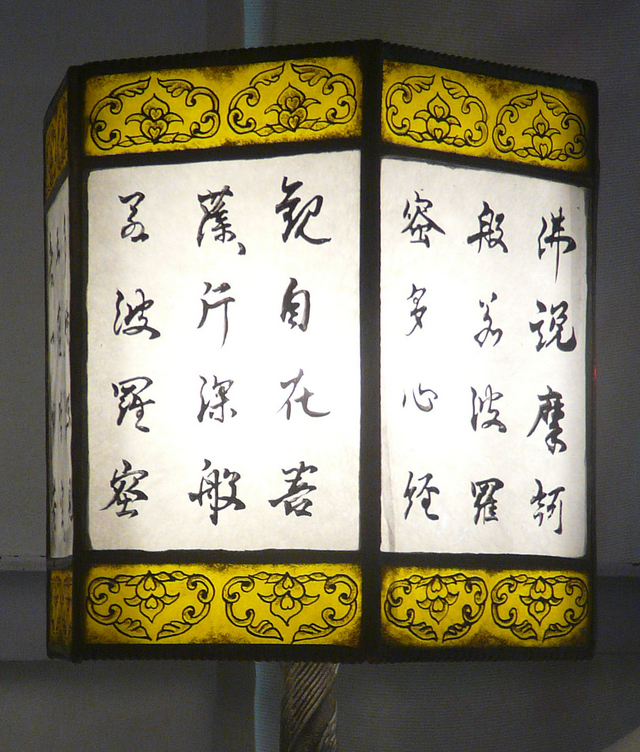 佛説摩訶
般若波羅
密多心经
觀自在菩
薩行深般
若波羅密